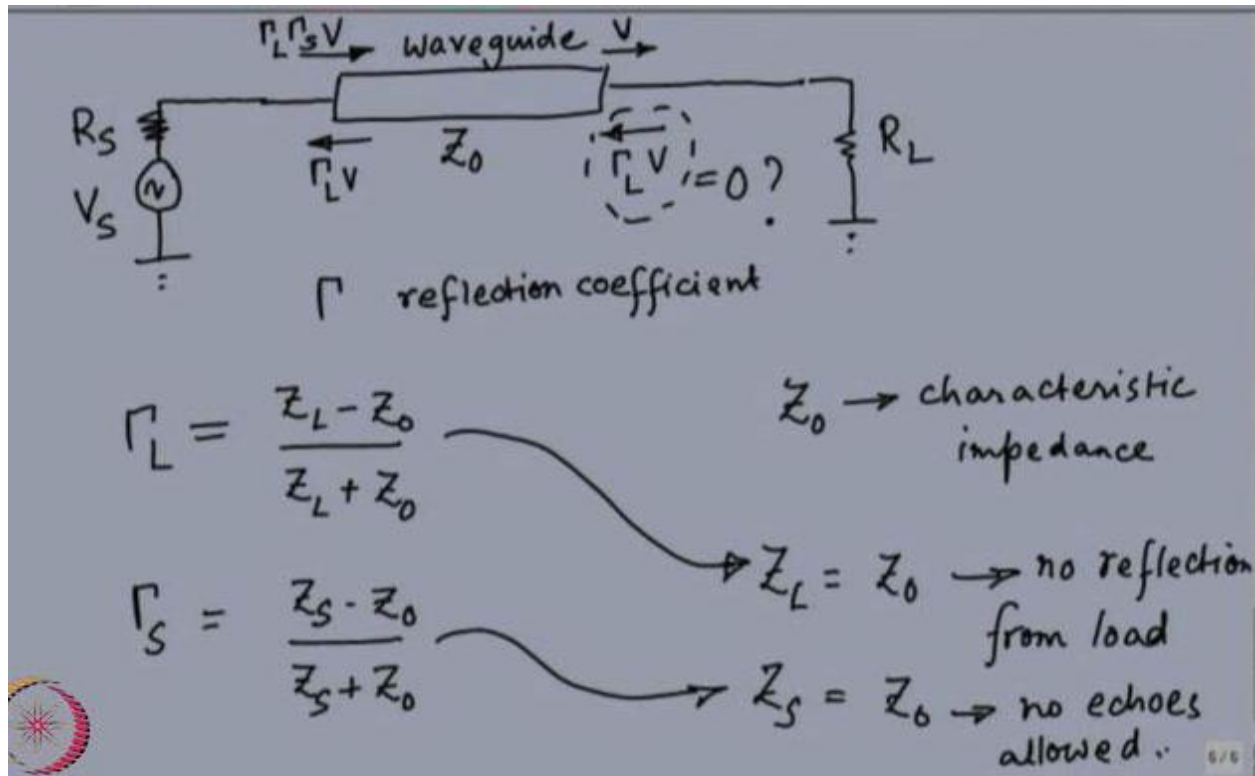 Γ_LΓ_SV waveguide V
R_S
V_S
Γ_LV
Z_0
Γ_LV = 0 ?
R_L
Γ reflection coefficient
Γ_L = (Z_L - Z_0) / (Z_L + Z_0)
Z_0 → characteristic
impedance
Z_L = Z_0 → no reflection
from load
Γ_S = (Z_S - Z_0) / (Z_S + Z_0)
Z_S = Z_0 → no echoes
allowed.
6/6